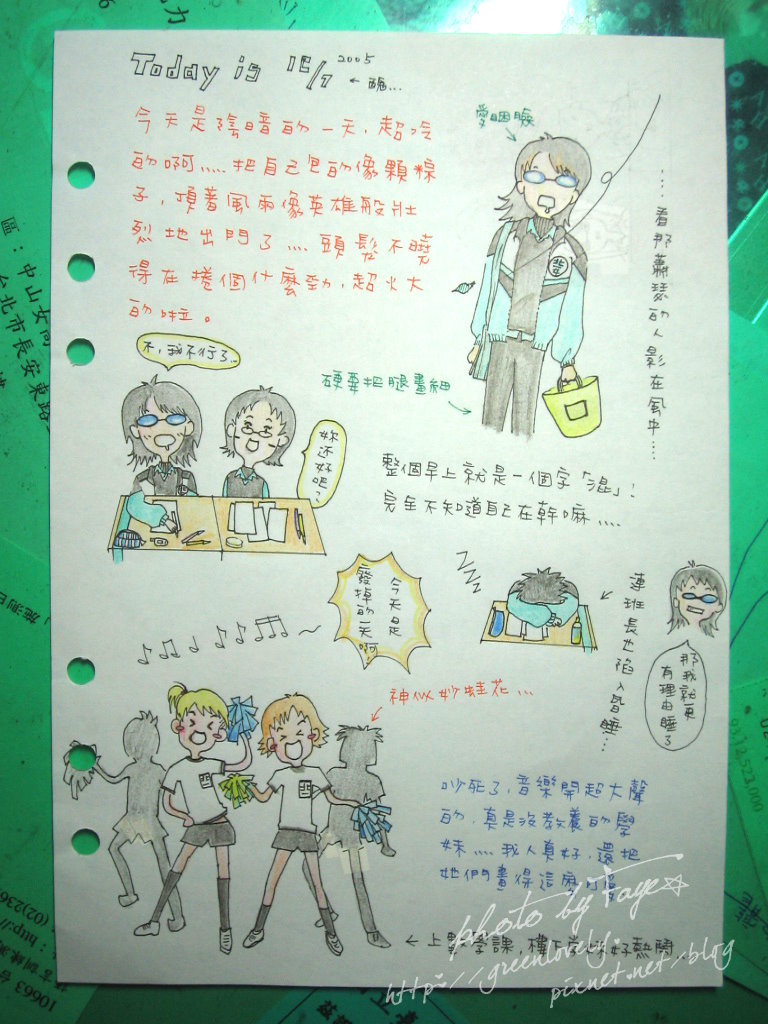 Today is 12/7 2005
今天是陰暗的一天，超冷
的啊.....把自己包的像顆粽
子，頂著風雨像英雄般壯
烈地出門了....頭髮不曉
得在捲個什麼勁，超火大
的啦。
愛睏臉
....看那蕭瑟的人影在風中.....
硬要把腿畫細
不，我不行了..
妳還好吧？
整個早上就是一個字「混」！
完全不知道自己在幹嘛....
今天是
廢掉的一天啊！
zzz
連班長也陷入昏睡...
那我就更
有理由睡了
神似妙蛙花...
吵死了，音樂開超大聲
的，真是沒教養的學
妹....我人真好，還把
她們畫得這麼可愛
←上數學課，樓下好熱鬧
photo by Faye☆
http://greenlovely.
pixnet.net/blog
區：中山女高
台北市長安東路
93.12.523,000
(02)236
10663 台